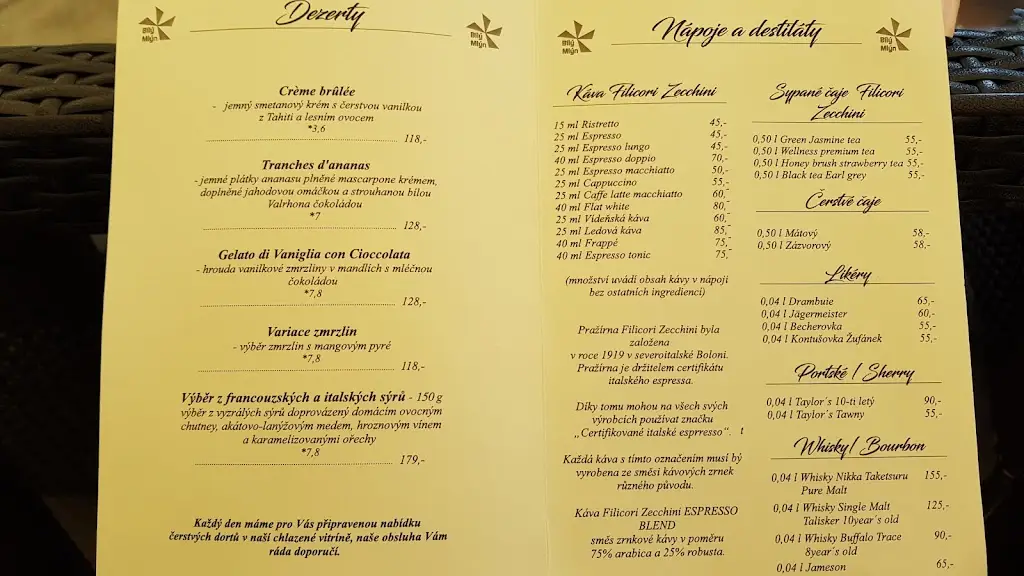 Dezerty
Bílý
Mlýn
Bílý
Mlýn
Crème brûlée
- jemný smetanový krém s čerstvou vanilkou
z Tahiti a lesním ovocem
*3,6
118,-
Tranches d'ananas
- jemné plátky ananasu plněné mascarpone krémem,
doplněné jahodovou omáčkou a strouhanou bílou
Valrhona čokoládou
*7
128,-
Gelato di Vaniglia con Cioccolata
- hrouda vanilkové zmrzliny v mandlích s mléčnou
čokoládou
*7,8
128,-
Variace zmrzlin
- výběr zmrzlin s mangovým pyré
*7,8
118,-
Výběr z francouzských a italských sýrů - 150 g
výběr z vyzrálých sýrů doprovázený domácím ovocným
chutney, akátovo-lanýžovým medem, hroznovým vínem
a karamelizovanými ořechy
*7,8
179,-
Každý den máme pro Vás připravenou nabídku
čerstvých dortů v naší chlazené vitríně, naše obsluha Vám
ráda doporučí.
Nápoje a destiláty
Bílý
Mlýn
Bílý
Mlýn
Káva Filicori Zecchini
15 ml Ristretto 45,-
25 ml Espresso 45,-
25 ml Espresso lungo 45,-
40 ml Espresso doppio 70,-
25 ml Espresso macchiatto 50,-
25 ml Cappuccino 55,-
25 ml Caffe latte macchiatto 60,-
40 ml Flat white 80,-
25 ml Vídeňská káva 60,-
25 ml Ledová káva 85,-
40 ml Frappé 75,-
40 ml Espresso tonic 75,-
(množství uvádí obsah kávy v nápoji
bez ostatních ingrediencí)
Pražírna Filicori Zecchini byla
založena
v roce 1919 v severoitalské Boloni.
Pražírna je držitelem certifikátu
italského espressa.
Díky tomu mohou na všech svých
výrobcích používat značku
„Certifikované italské esprresso“. t
Každá káva s tímto označením musí bý
vyrobena ze směsi kávových zrnek
různého původu.
Káva Filicori Zecchini ESPRESSO
BLEND
směs zrnkové kávy v poměru
75% arabica a 25% robusta.
Sypané čaje Filicori
Zecchini
0,50 l Green Jasmine tea 55,-
0,50 l Wellness premium tea 55,-
0,50 l Honey brush strawberry tea 55,-
0,50 l Black tea Earl grey 55,-
Čerstvé čaje
0,50 l Mátový 58,-
0,50 l Zázvorový 58,-
Likéry
0,04 l Drambuie 65,-
0,04 l Jägermeister 60,-
0,04 l Becherovka 55,-
0,04 l Kontušovka Žufánek 55,-
Portské / Sherry
0,04 l Taylor´s 10-ti letý 90,-
0,04 l Taylor´s Tawny 55,-
Whisky/ Bourbon
0,04 l Whisky Nikka Taketsuru 155,-
Pure Malt
0,04 l Whisky Single Malt 125,-
Talisker 10year´s old
0,04 l Whisky Buffalo Trace 90,-
8year´s old
0,04 l Jameson 65,-